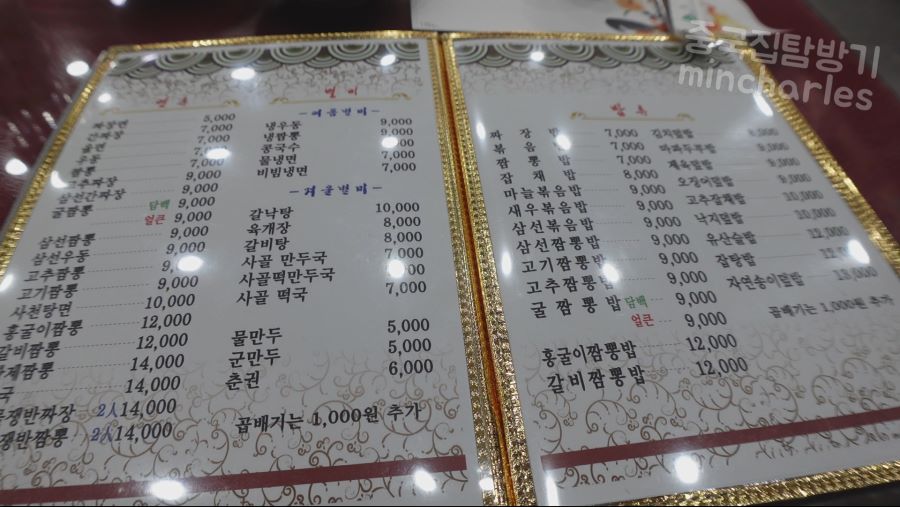 중국집탐방기
mincharles
면류
짜장면 5,000
간짜장 7,000
울면 7,000
우동 7,000
짬뽕
고추짜장 9,000
삼선간짜장 9,000
굴짬뽕 담백 9,000
얼큰 9,000
삼선짬뽕 9,000
삼선우동 9,000
고추짬뽕
고기짬뽕 9,000
사천탕면 10,000
홍굴이짬뽕 12,000
갈비짬뽕 12,000
14,000
14,000
쟁반짜장 2人 14,000
쟁반짬뽕 2人 14,000
별미
-여름별미-
냉우동 9,000
냉짬뽕 9,000
콩국수
물냉면 7,000
비빔냉면 7,000
-겨울별미-
갈낙탕 10,000
육개장 8,000
갈비탕 8,000
사골 만두국 7,000
사골떡만두국
사골 떡국 7,000
물만두 5,000
군만두 5,000
춘권 6,000
곱배기는 1,000원 추가
밥류
짜장밥 7,000
볶음밥 7,000
짬뽕밥 7,000
잡채밥 8,000
마늘볶음밥 9,000
새우볶음밥 9,000
삼선볶음밥 9,000
삼선짬뽕밥 9,000
고기짬뽕밥 9,000
고추짬뽕밥 9,000
굴짬뽕밥 담백 9,000
얼큰 9,000
홍굴이짬뽕밥 12,000
갈비짬뽕밥 12,000
김치덮밥 8,000
마파두부밥
제육덮밥 9,000
오징어덮밥 9,000
고추잡채밥 10,000
낙지덮밥 10,000
유산슬밥 12,000
잡탕밥
자연송이덮밥 13,000
곱배기는 1,000원 추가